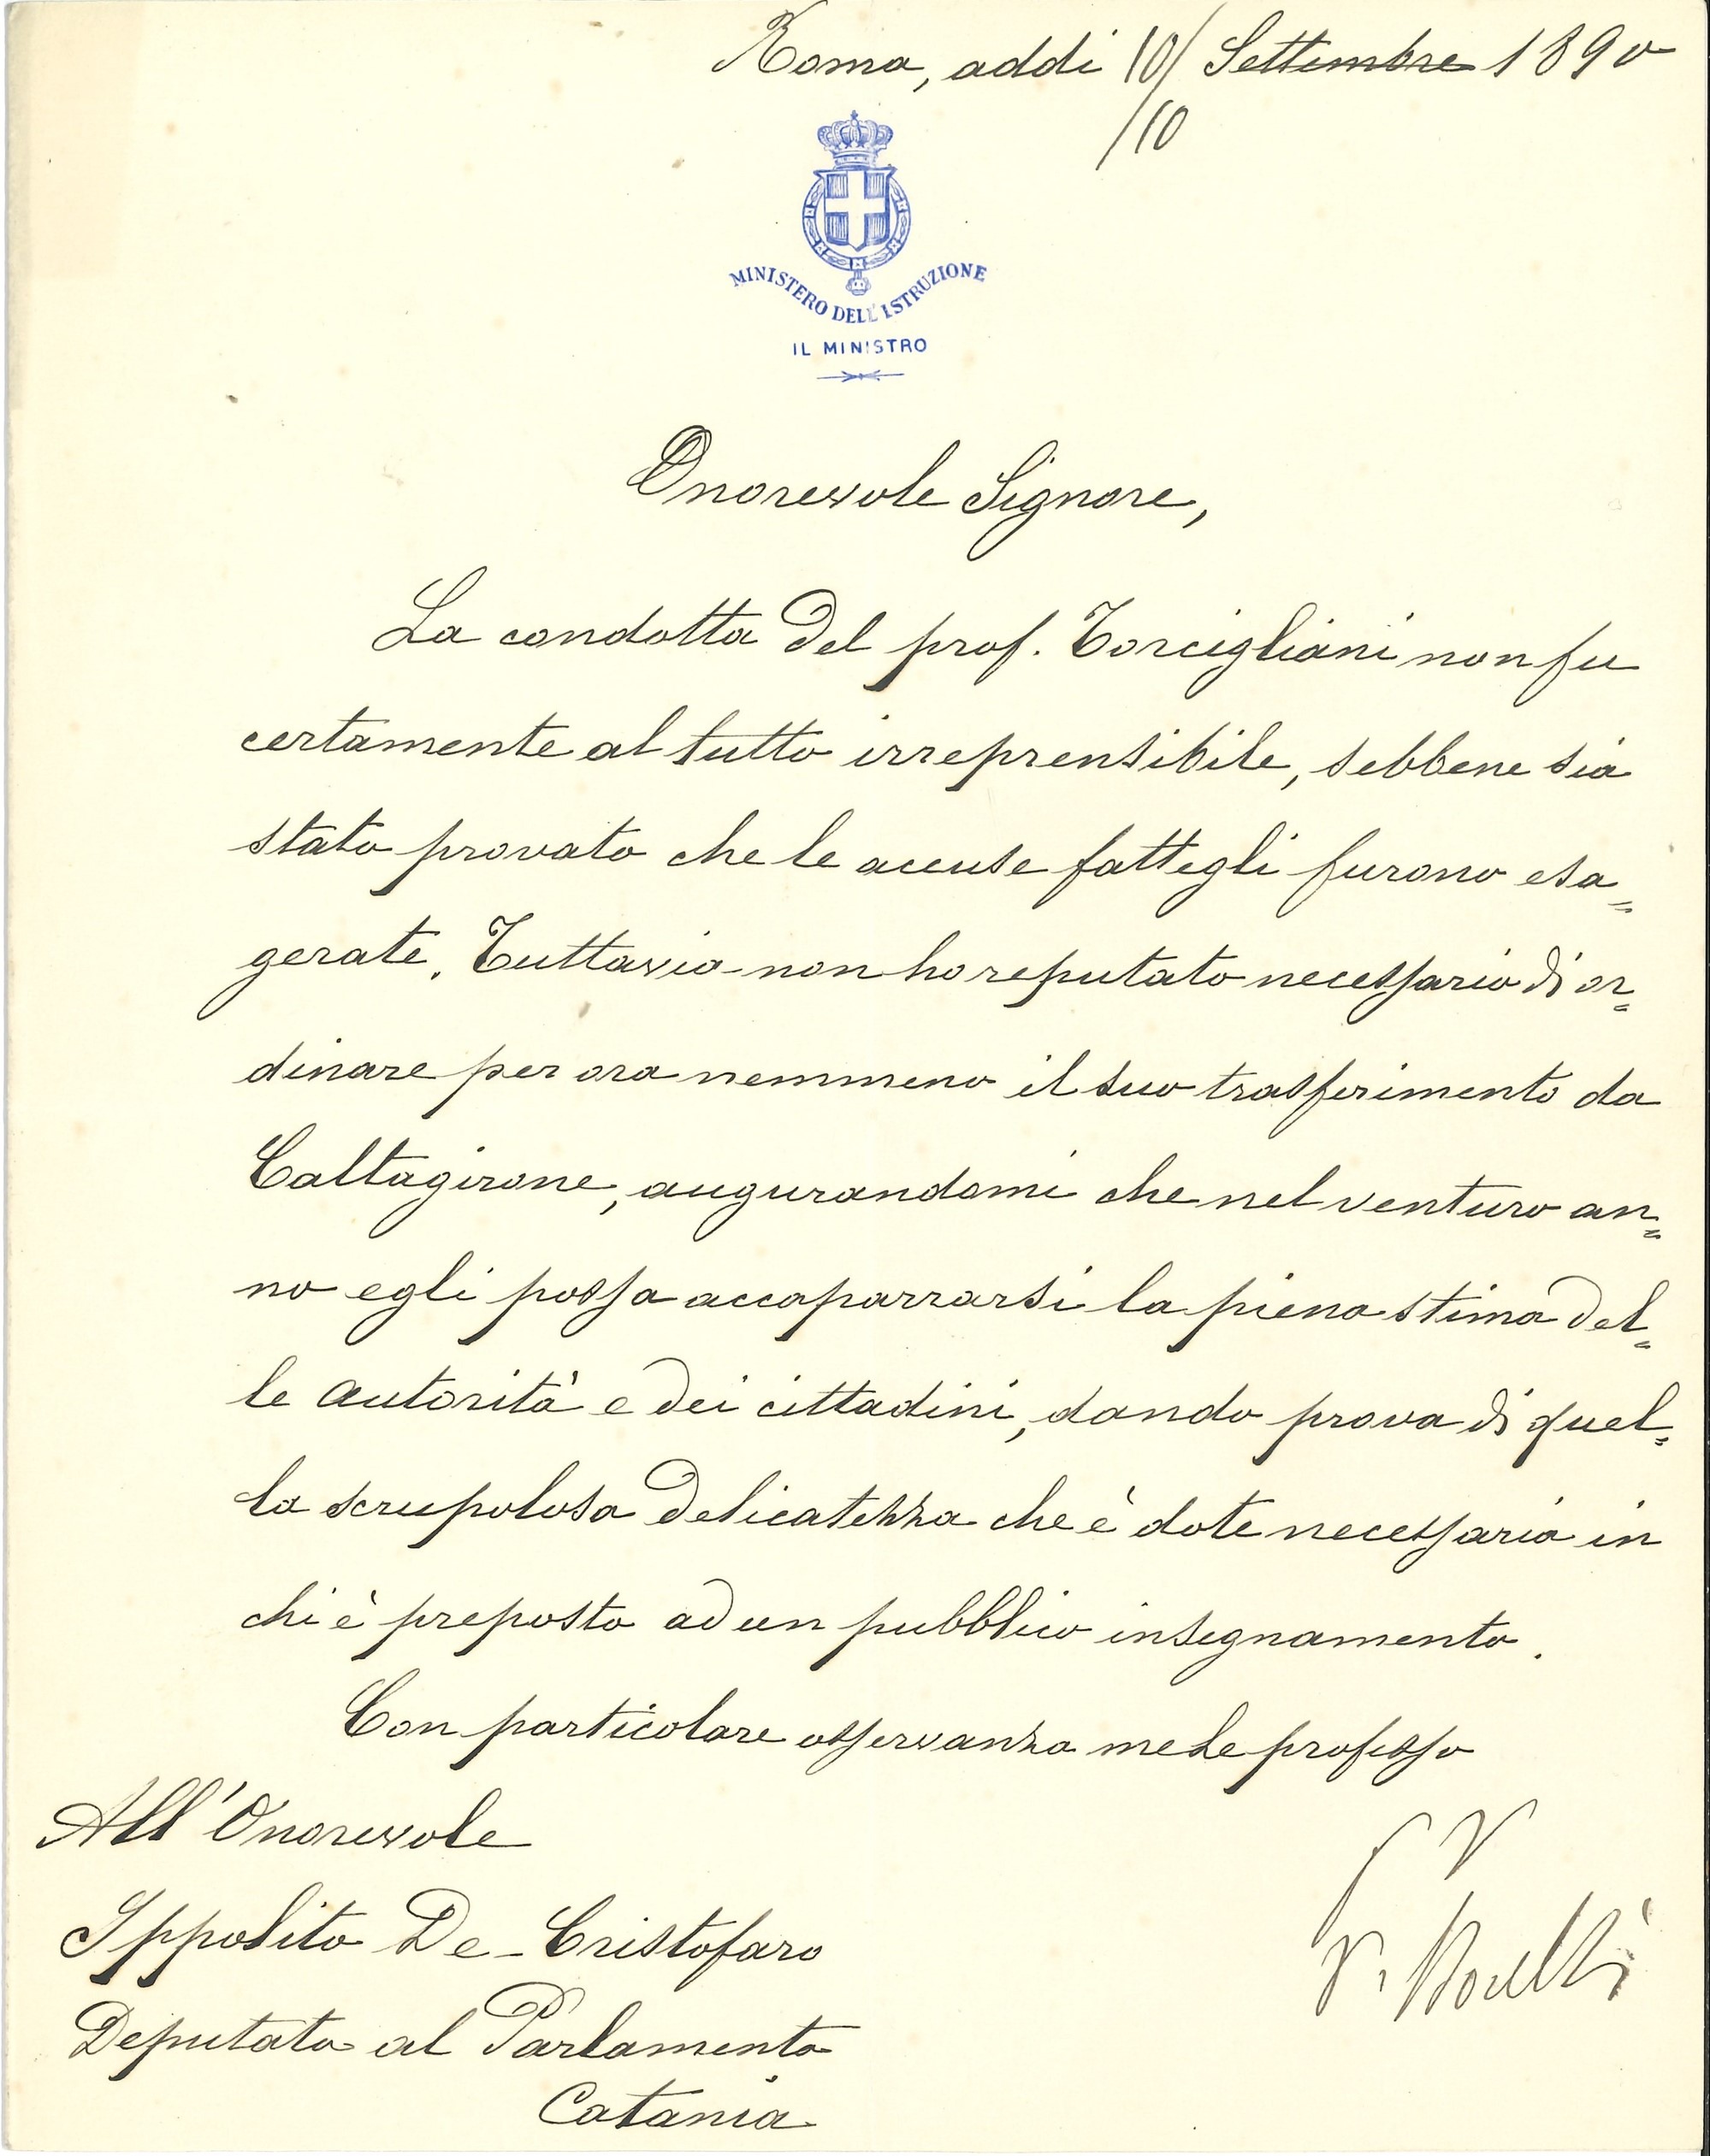 Roma, addì 10/ Settembre 1890
/10
MINISTERO DELL'ISTRUZIONE
IL MINISTRO
Onorevole Signore,
La condotta del prof. Torcigliani non fu
certamente al tutto irreprensibile, sebbene sia
stato provato che le accuse fattegli furono esa=
gerate. Tuttavia non ho reputato necessario di or=
dinare per ora nemmeno il suo trasferimento da
Caltagirone, augurandomi che nel venturo an=
no egli possa accaparrarsi la piena stima del=
le autorità e dei cittadini, dando prova di quel=
la scrupolosa delicatezza che è dote necessaria in
chi è preposto ad un pubblico insegnamento.
Con particolare osservanza me Le professo
All'Onorevole
Ippolito De-Cristofaro
Deputato al Parlamento
Catania
P. Boselli